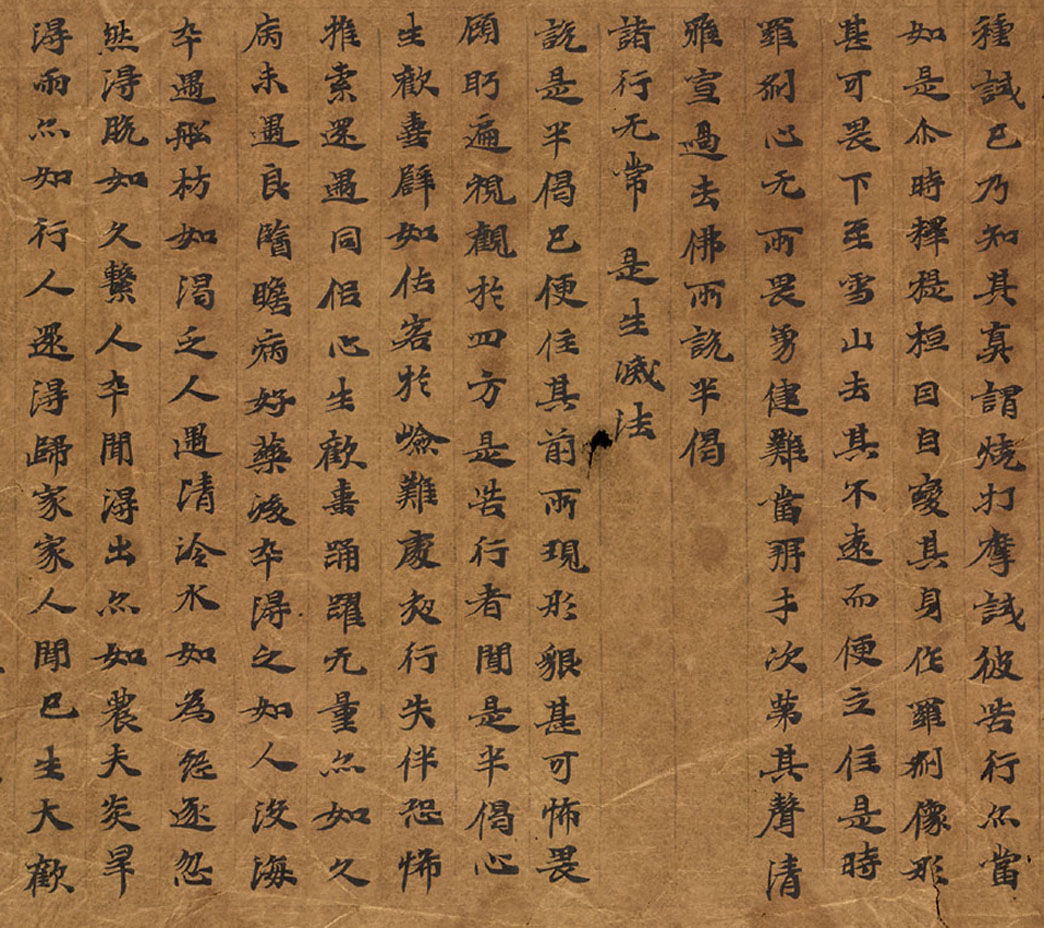 種試已乃知其真謂燒打摩試彼苦行亦當
如是尒時釋提桓因自變其身作羅刹像形
甚可畏下至雪山去其不遠而便立住是時
羅刹心无所畏勇健難當辯才次第其聲清
雅宣過去佛所說半偈
諸行无常 是生滅法
說是半偈已便住其前所現形貌甚可怖畏
顧眄遍視觀於四方是苦行者聞是半偈心
生歡喜譬如估客於嶮難處夜行失伴恐怖
推索還遇同侶心生歡喜踊躍无量亦如久
病未遇良醫瞻病好藥後卒得之如人沒海
卒遇舩枋如渴乏人遇清冷水如為怨逐忽
然得脫如久繫人卒聞得出亦如農夫炎旱
得雨亦如行人還得歸家家人聞已生大歡